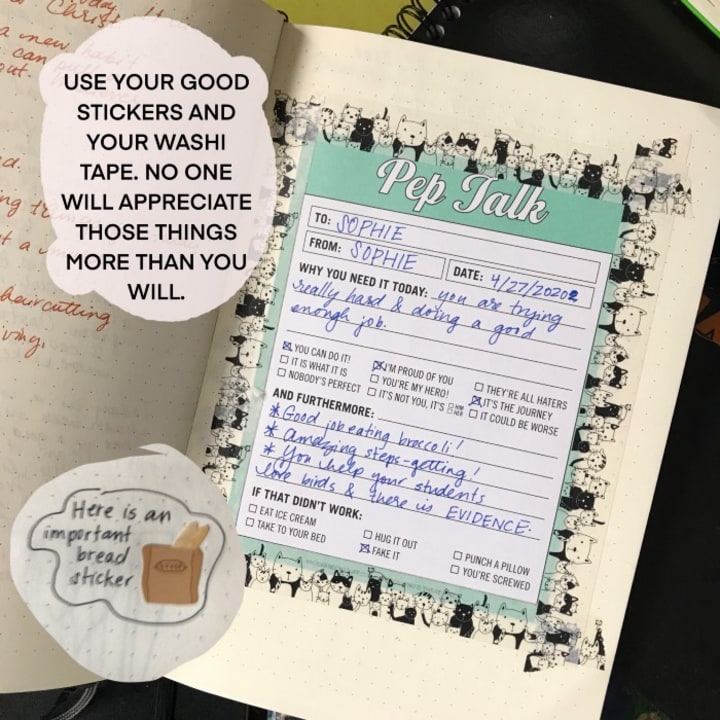 Christ
a new habit
can
out.
USE YOUR GOOD
STICKERS AND
YOUR WASHI
TAPE. NO ONE
WILL APPRECIATE
THOSE THINGS
MORE THAN YOU
WILL.
haircutting
Here is an
important
bread
sticker
Pep Talk
TO: SOPHIE
FROM: SOPHIE
DATE: 4/27/2020
WHY YOU NEED IT TODAY: you are trying
really hard & doing a good
enough job.
YOU CAN DO IT! I'M PROUD OF YOU THEY'RE ALL HATERS
IT IS WHAT IT IS YOU'RE MY HERO! IT'S THE JOURNEY
NOBODY'S PERFECT IT'S NOT YOU, IT'S IT COULD BE WORSE
AND FURTHERMORE:
* Good job eating broccoli!
* Amazing steps-getting!
* You help your students
love birds & there is EVIDENCE.
IF THAT DIDN'T WORK:
EAT ICE CREAM HUG IT OUT PUNCH A PILLOW
TAKE TO YOUR BED FAKE IT YOU'RE SCREWED